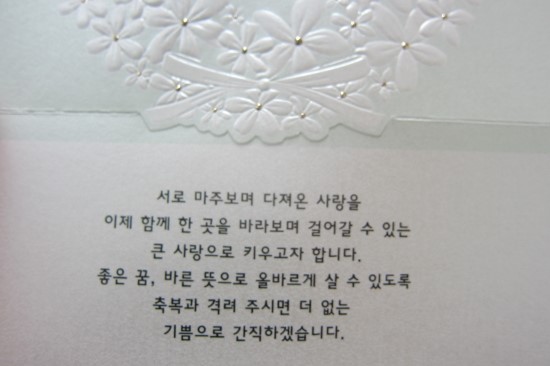 서로 마주보며 다져온 사랑을
이제 함께 한 곳을 바라보며 걸어갈 수 있는
큰 사랑으로 키우고자 합니다.
좋은 꿈, 바른 뜻으로 올바르게 살 수 있도록
축복과 격려 주시면 더 없는
기쁨으로 간직하겠습니다.